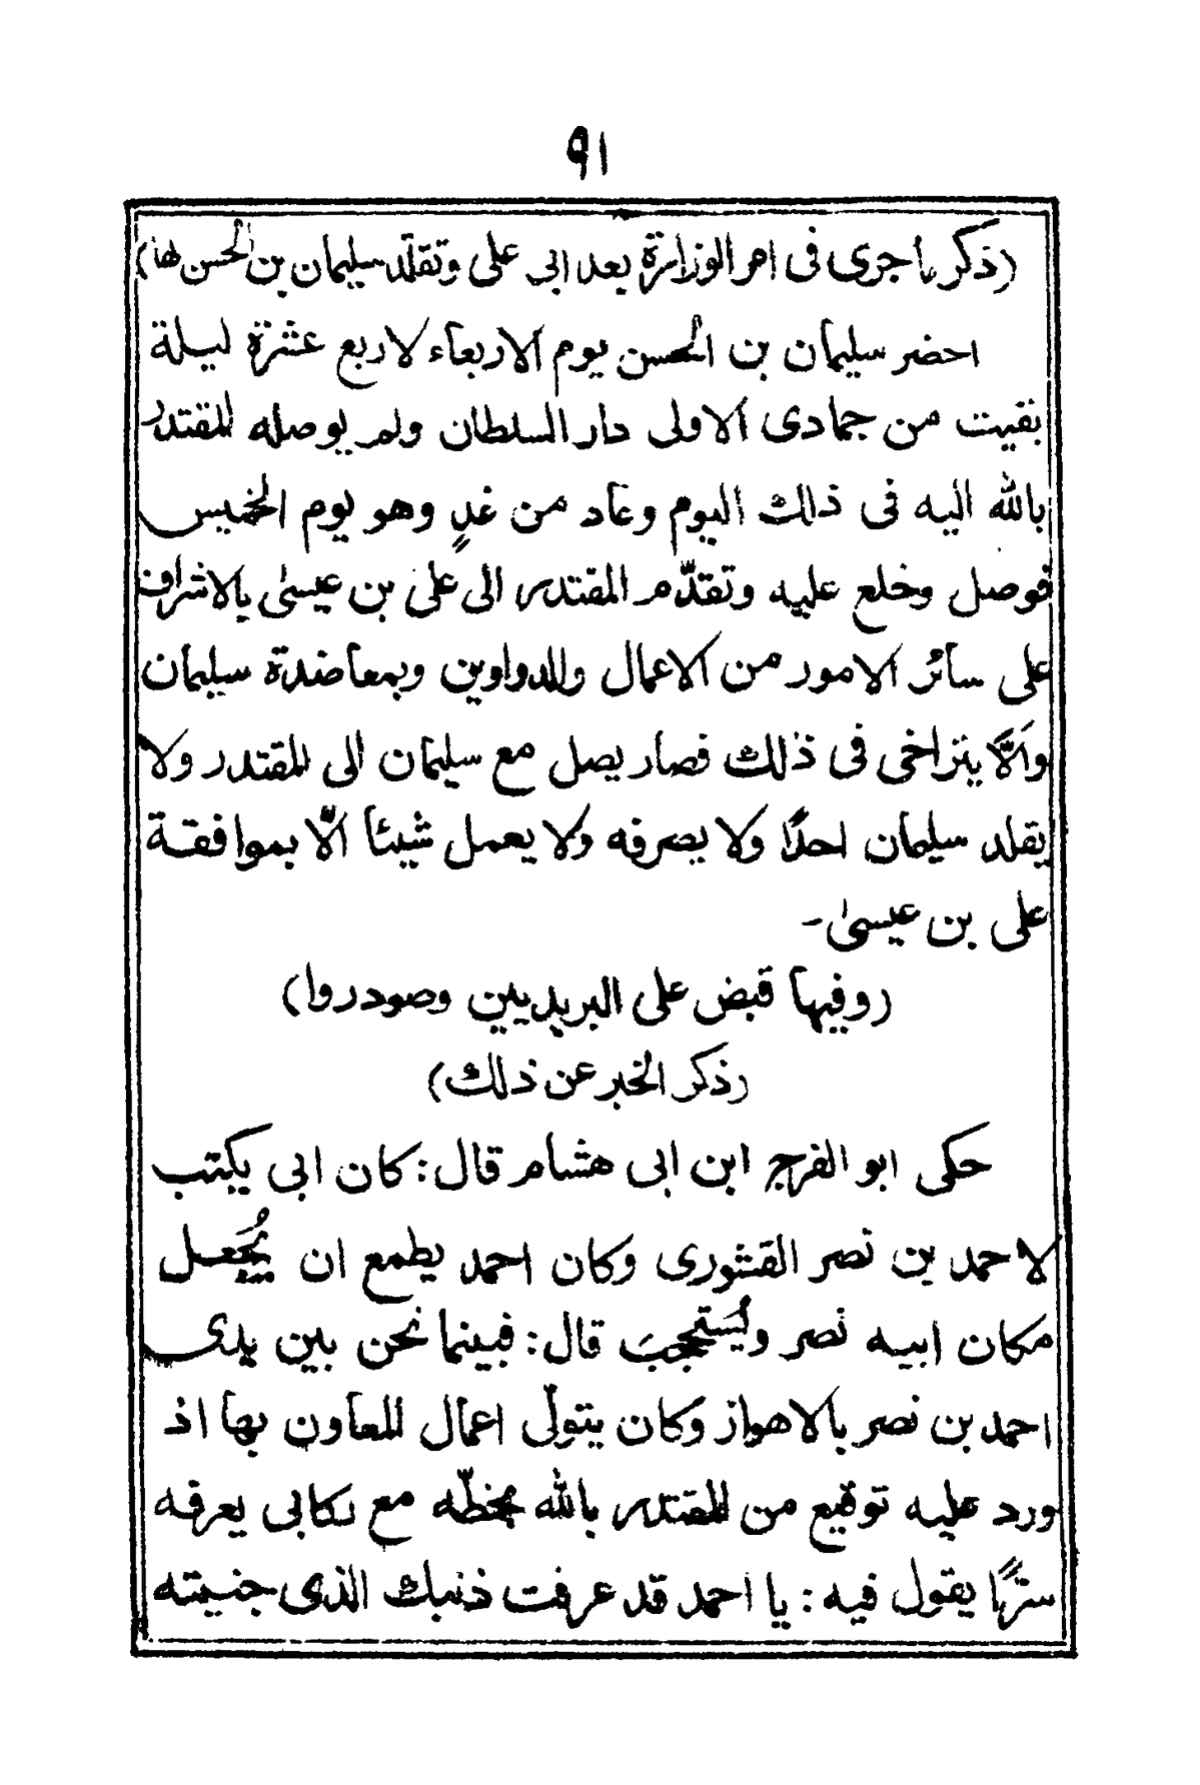 ٩١
(ذكر ما جرى فى امر الوزارة بعد ابى على وتقلد سليمان بن الحسن لها)
احضر سليمان بن الحسن يوم الاربعاء لاربع عشرة ليلة
بقيت من جمادى الاولى دار السلطان ولم يوصله المقتدر
بالله اليه فى ذلك اليوم وعاد من غدٍ وهو يوم الخميس
فوصل وخلع عليه وتقدّم المقتدر الى على بن عيسىٰ بالاشراف
على سائر الامور من الاعمال والدواوين وبمعاضدة سليمان
وَالَّا يتراخى فى ذلك فصار يصل مع سليمان الى المقتدر ولا
يقلد سليمان احدًا ولا يصرفه ولا يعمل شيئا الّا بموافقة
على بن عيسىٰ-
(وفيها قبض على البريديين وصودروا)
(ذكر الخبر عن ذلك)
حكى ابو الفرج ابن ابى هشام قال: كان ابى يكتب
لاحمد بن نصر القشورى وكان احمد يطمع ان يُجَعل
مكان ابيه نصر ويُستَحجبَ قال: فبينما نحن بين يدى
احمد بن نصر بالاهواز وكان يتولّى اعمال المعاون بها اذ
ورد عليه توقيع من المقتدر بالله بخطّه مع ركابى يعرفه
سترًا يقول فيه: يا احمد قد عرفت ذنبك الذى جنيته